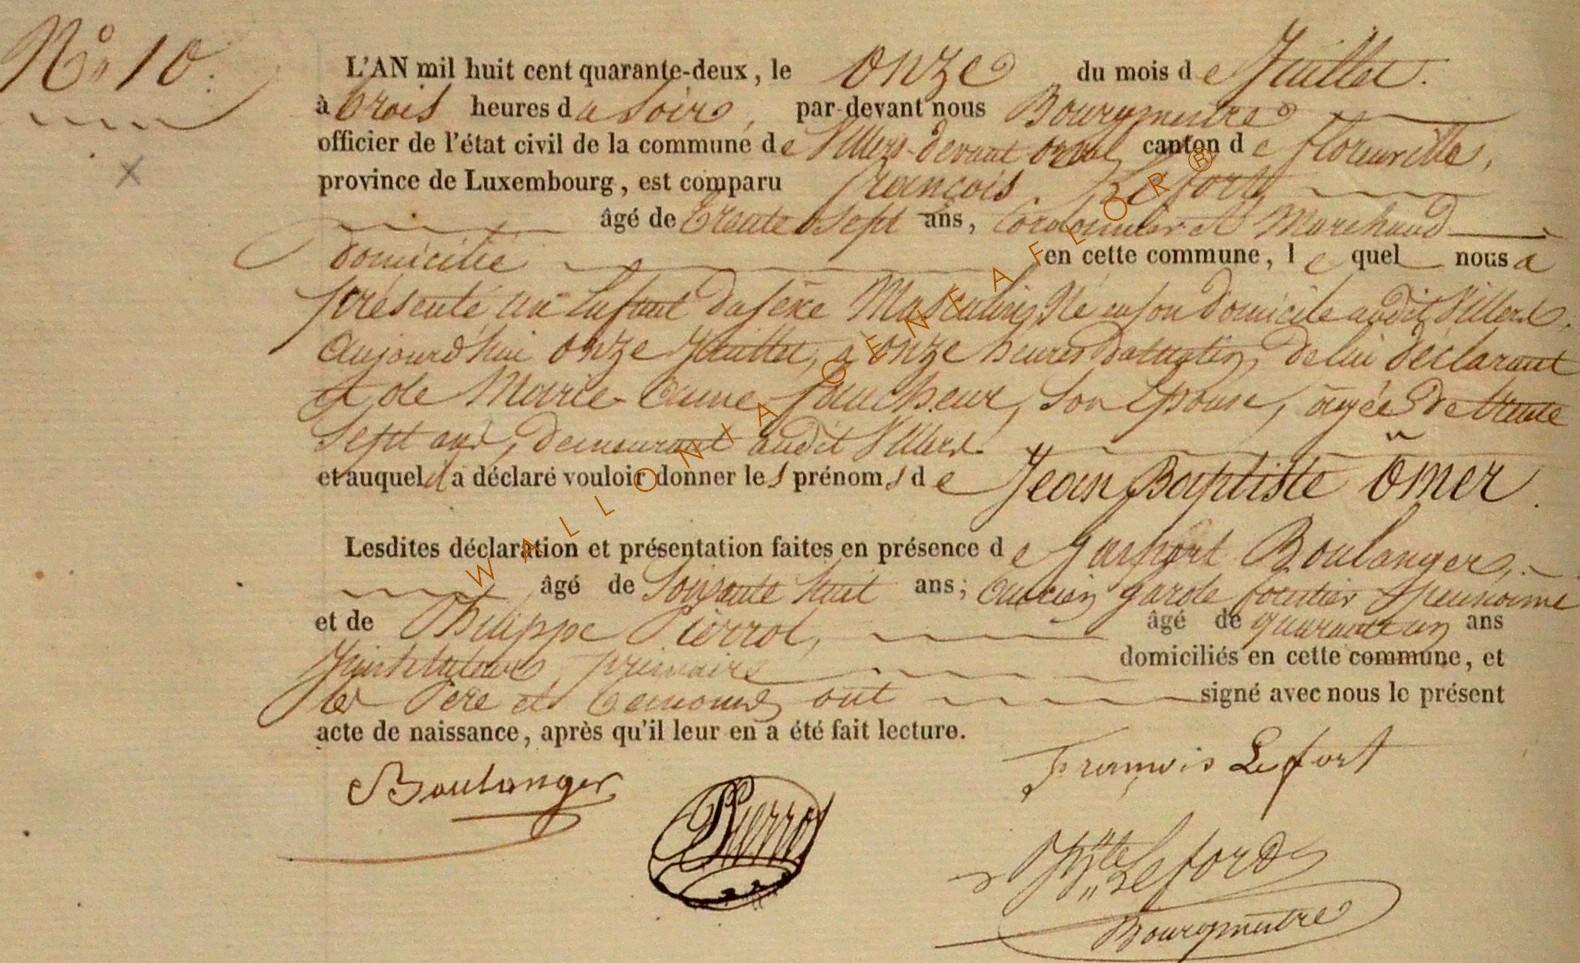 N° 10.
L'AN mil huit cent quarante-deux, le onze du mois de Juillet.
à trois heures du soir, par-devant nous Bourgmestre
officier de l'état civil de la commune de Villers-devant orval, canton de florenville,
province de Luxembourg, est comparu françois Lefort
âgé de trente sept ans, Cordonnier et Marchand
domicilié en cette commune, lequel nous a
présenté un Enfant du sexe Masculin, Né en son Domicile audit Villers,
aujourd'hui onze Juillet, à onze heures du matin, de lui déclarant
et de Marie-Anne faucheur, son Epouse, agée de trente
Sept ans, demeurant audit Villers.
et auquel il a déclaré vouloir donner les prénoms de Jean Baptiste Omer.
Lesdites déclaration et présentation faites en présence de Boulanger,
âgé de soixante huit ans; ancien garde forestier
et de Philippe Pierrot, âgé de quarante un ans
instituteur primaire domiciliés en cette commune, et
les Père et témoins ont signé avec nous le présent
acte de naissance, après qu'il leur en a été fait lecture.
François Lefort
Boulanger
Pierrot
Lefort
Bourgmestre
WALLONIA GENEAFLOR®